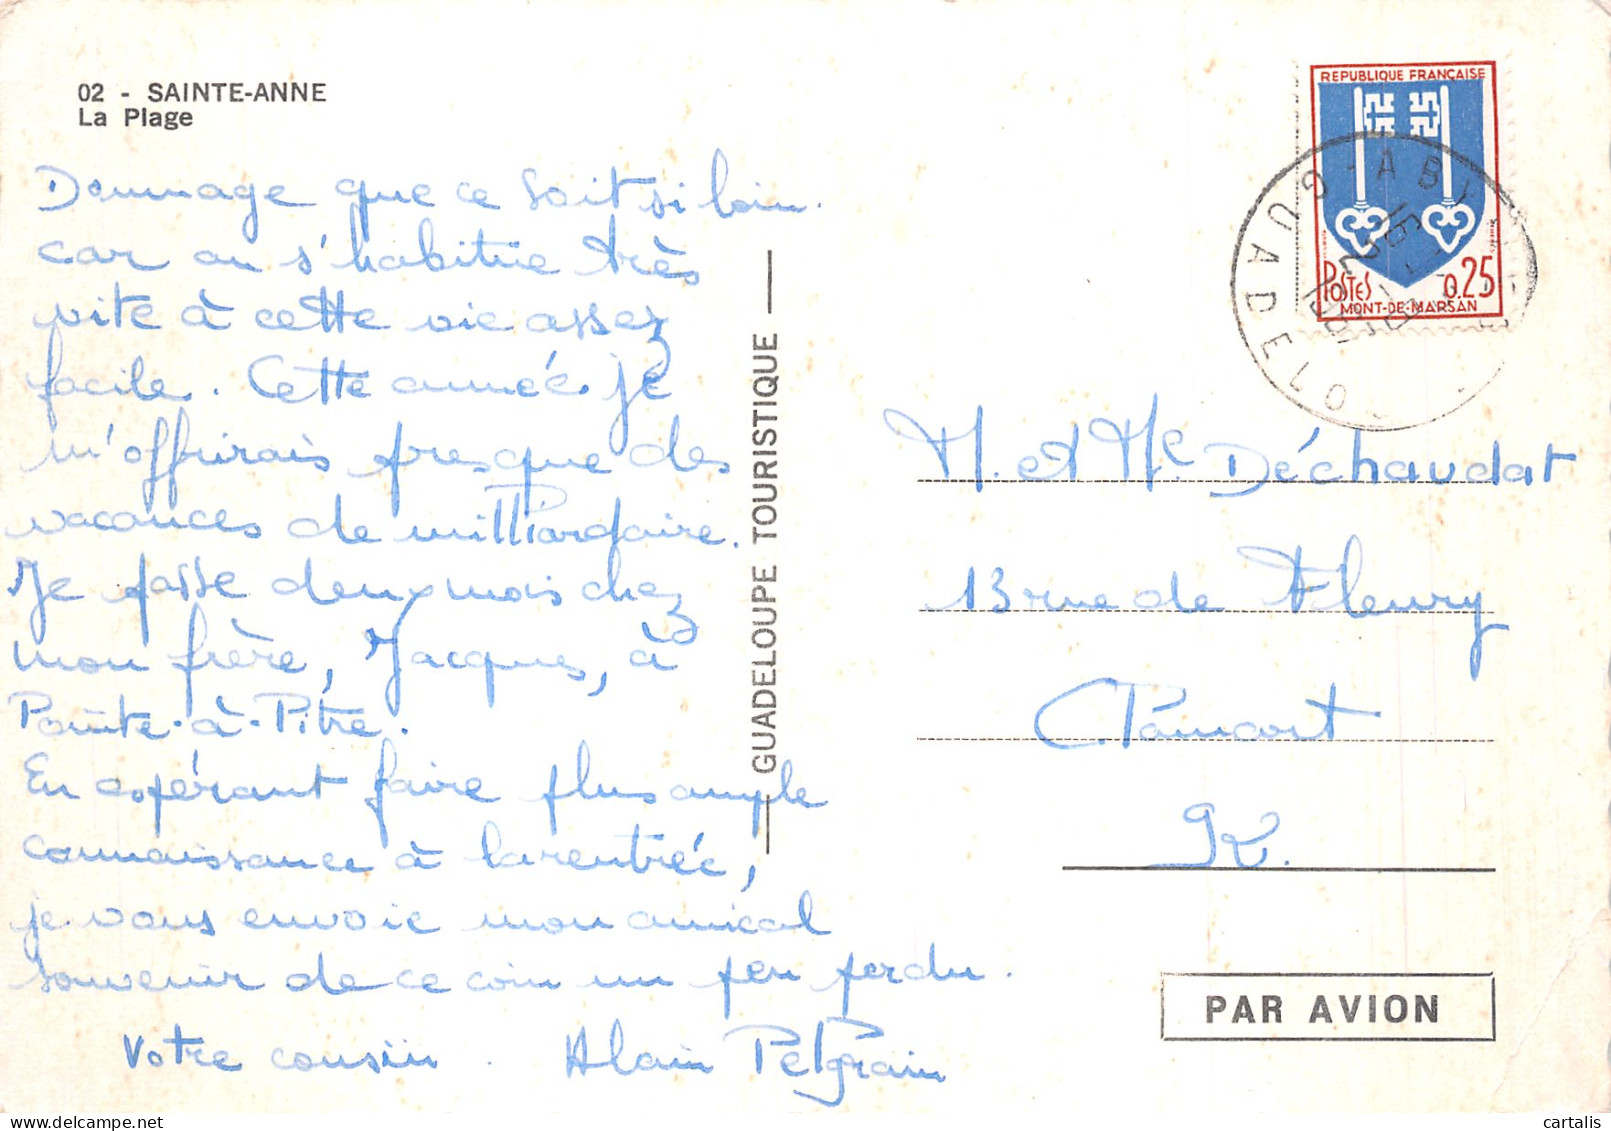 02 - SAINTE-ANNE
La Plage
Dommage que ce soit si loin.
car on s'habitue très
vite à cette vie assez
facile. Cette année je
m'offrirais presque des
vacances de milliardaire.
Je passe deux mois chez
mon frère, Jacques, à
Pointe-à-Pitre.
En espérant faire plus ample
connaissance à la rentrée,
je vous envoie mon amical
souvenir de ce coin un peu perdu.
Votre cousin. Alain Pelgrain
GUADELOUPE TOURISTIQUE
REPUBLIQUE FRANÇAISE
POSTES 0.25
MONT-DE-MARSAN
GUADELO
M. et Me Déchaudat
13 rue de Fleury
Clamart
PAR AVION
cartalis